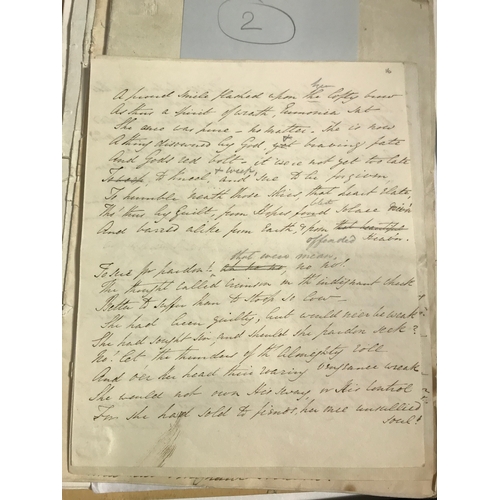 2
A proud smile flashed upon the lofty brow
her
As thus a spirit of wrath, Eumonia sat
She once was pure – no matter – she is now
A thing disowned by God, & yet braving fate
And God's red bolt – it were not yet too late
To kneel, & weep, and sue to be forgiven
To humble 'neath those skies, that heart elate,
Tho' thus by Guilt, from Hope's fond solace riven
And barred alike from Earth & from that beautiful
offended Heav'n.
that were mean,
To sue for pardon! ah no no, no no!
The thought called crimson on the indignant cheek
Better to suffer than to stoop so low –
She had been guilty, but would ne'er be weak
She had sought sin and should she pardon seek? –
No! let the thunders of th' Almighty roll
And o'er her head their roaring vengeance wreak –
She would not own His sway or His control
For she had sold to fiends, her once unsullied
Soul!